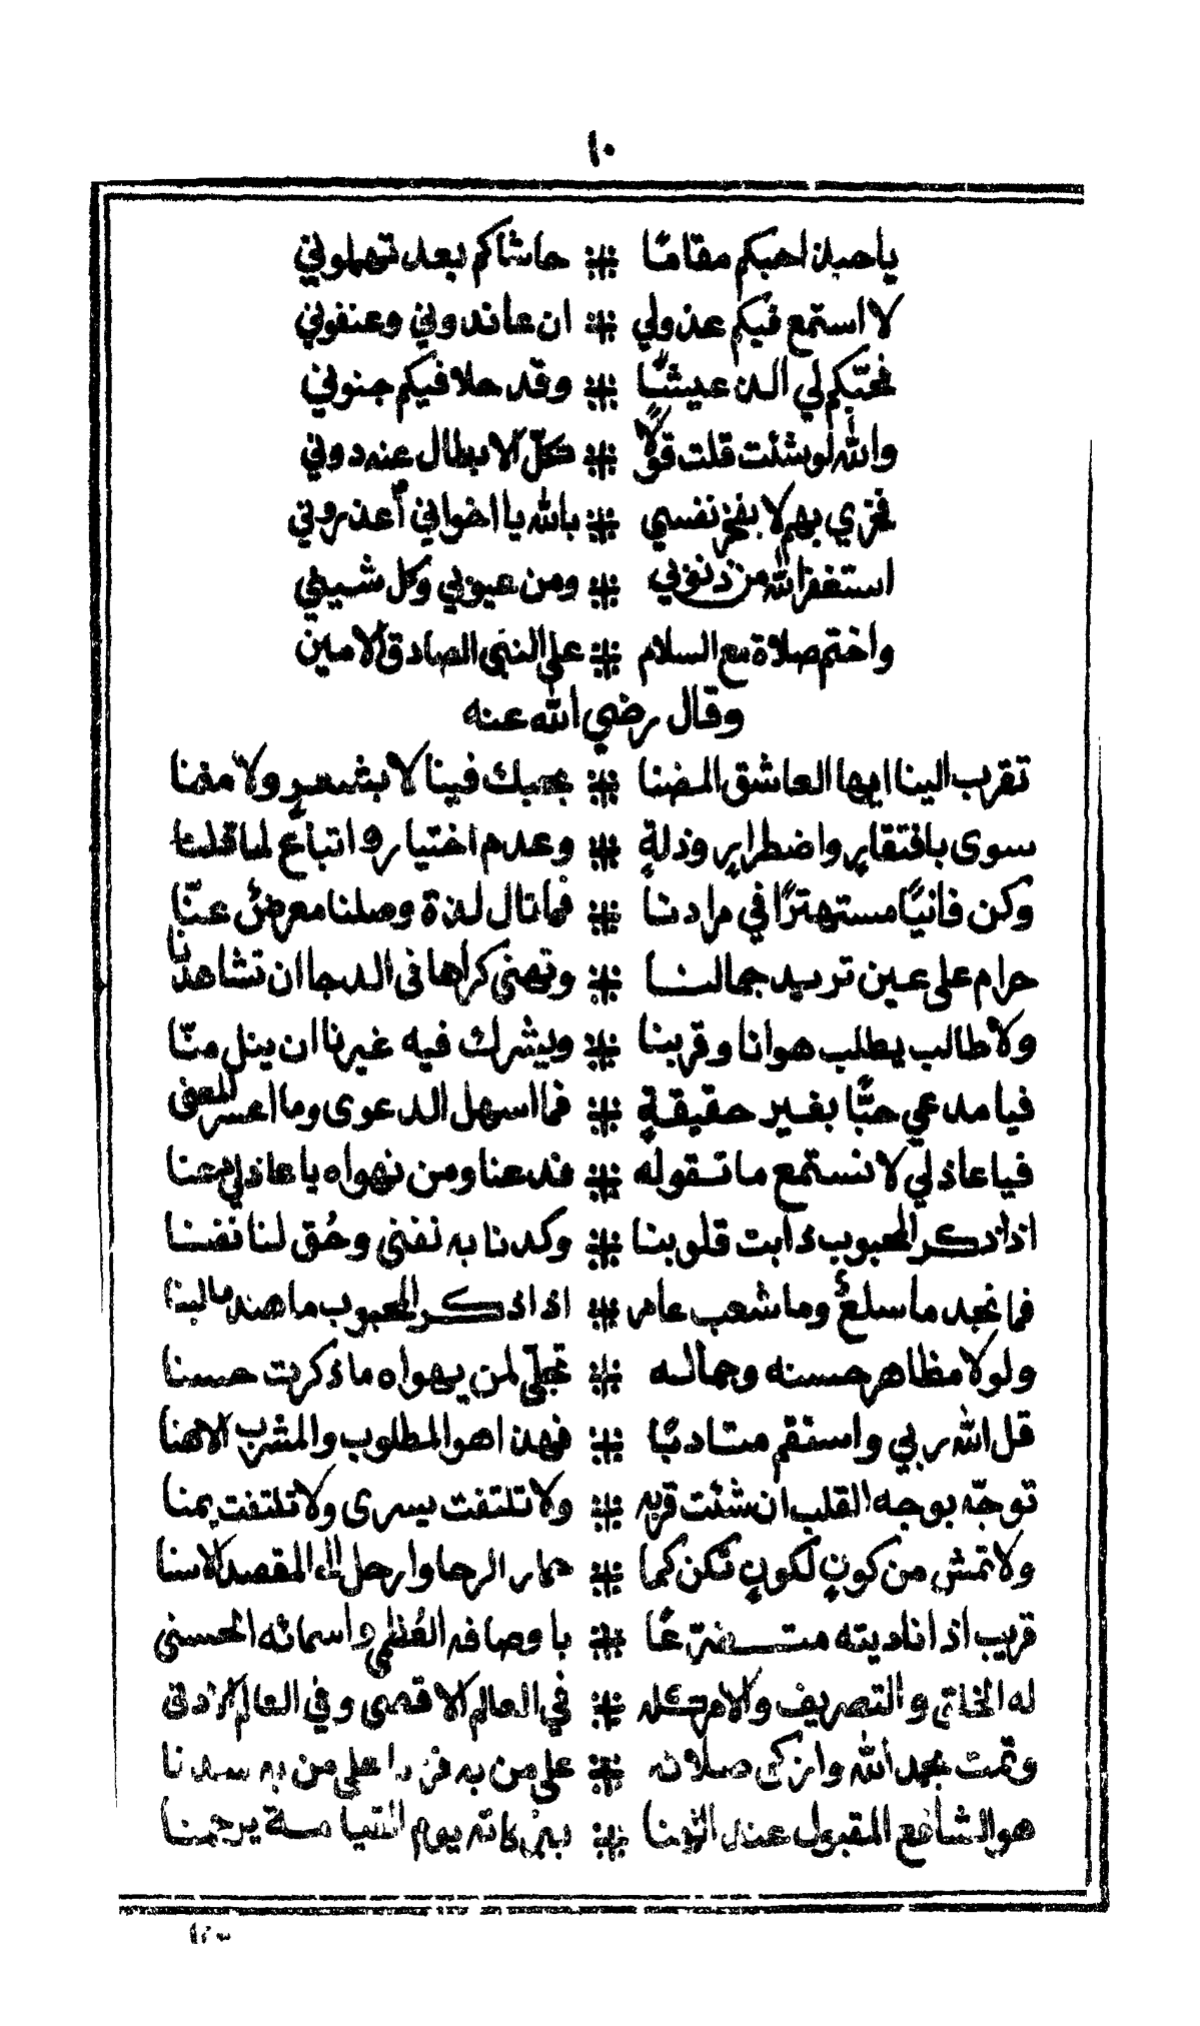 ١٠
يا صبذ احبكم مقامًا ⁜ حاشاكم بعد تهملوني
لا استمع فيكم عذولي ⁜ ان عاندوني وعنفوني
فحبّكم لي الذ عيشًا ⁜ وقد حلا فيكم جنوني
والله لو شئت قلت قولًا ⁜ كلّ الابطال عنه دوني
فخري بهم لا بفخر نفسي ⁜ بالله يا اخواني أعذروني
استغفر الله من ذنوبي ⁜ ومن عيوبي وكل شيني
واختم صلاة مع السلام ⁜ على النبي الصادق الامين
وقال رضي الله عنه
تقرب الينا ايها العاشق المضنا ⁜ بحبك فينا لا بشعرٍ ولا مغنا
سوى بافتقارٍ واضطرارٍ وذلةٍ ⁜ وعدم اختيارٍ واتباعٍ لما قلنا
وكن فانيًا مستهترًا في مرادنا ⁜ فما نال لذة وصلنا معرضٌ عنّا
حرام على عين تريد جمالنا ⁜ وتهنى كراها في الدجا ان تشاهدنا
ولا طالب يطلب هوانا وقربنا ⁜ ويشرك فيه غيرنا ان ينل منّا
فيا مدعي حبًّا بغير حقيقةٍ ⁜ فما اسهل الدعوى وما اعسر المعنى
فيا عاذلي لا نستمع ما تقوله ⁜ فدعنا ومن نهواه يا عاذلي دعنا
اذا ذكر المحبوب ذابت قلوبنا ⁜ وكدنا به نفنى وحُق لنا نفنا
فما نجد ما سلعٌ وما شعب عامر ⁜ اذا ذكر المحبوب ما هند ما لبنا
ولولا مظاهر حسنه وجماله ⁜ تجلّي لمن يهواه ما ذكرت حسنا
قل الله ربي واستقم متادبًا ⁜ فهذا هو المطلوب والمشرب الاهنا
توجّه بوجه القلب ان شئت قربه ⁜ ولا تلتفت يسرى ولا تلتفت يمنا
ولا تمش من كونٍ لكونٍ تكن كما ⁜ حمار الرحا وارحل الى المقصد الاسنا
قريب اذا ناديته متضرّعًا ⁜ باوصافه العُظمى واسمائه الحسنى
له الخلق والتصريف والامر كله ⁜ في العالم الاقصى وفي العالم الادنى
وتمت بحمد الله وازكى صلاته ⁜ على من به فزنا على من به سدنا
هو الشافع المقبول عند الهنا ⁜ ببركاته يوم القيامة يرحمنا